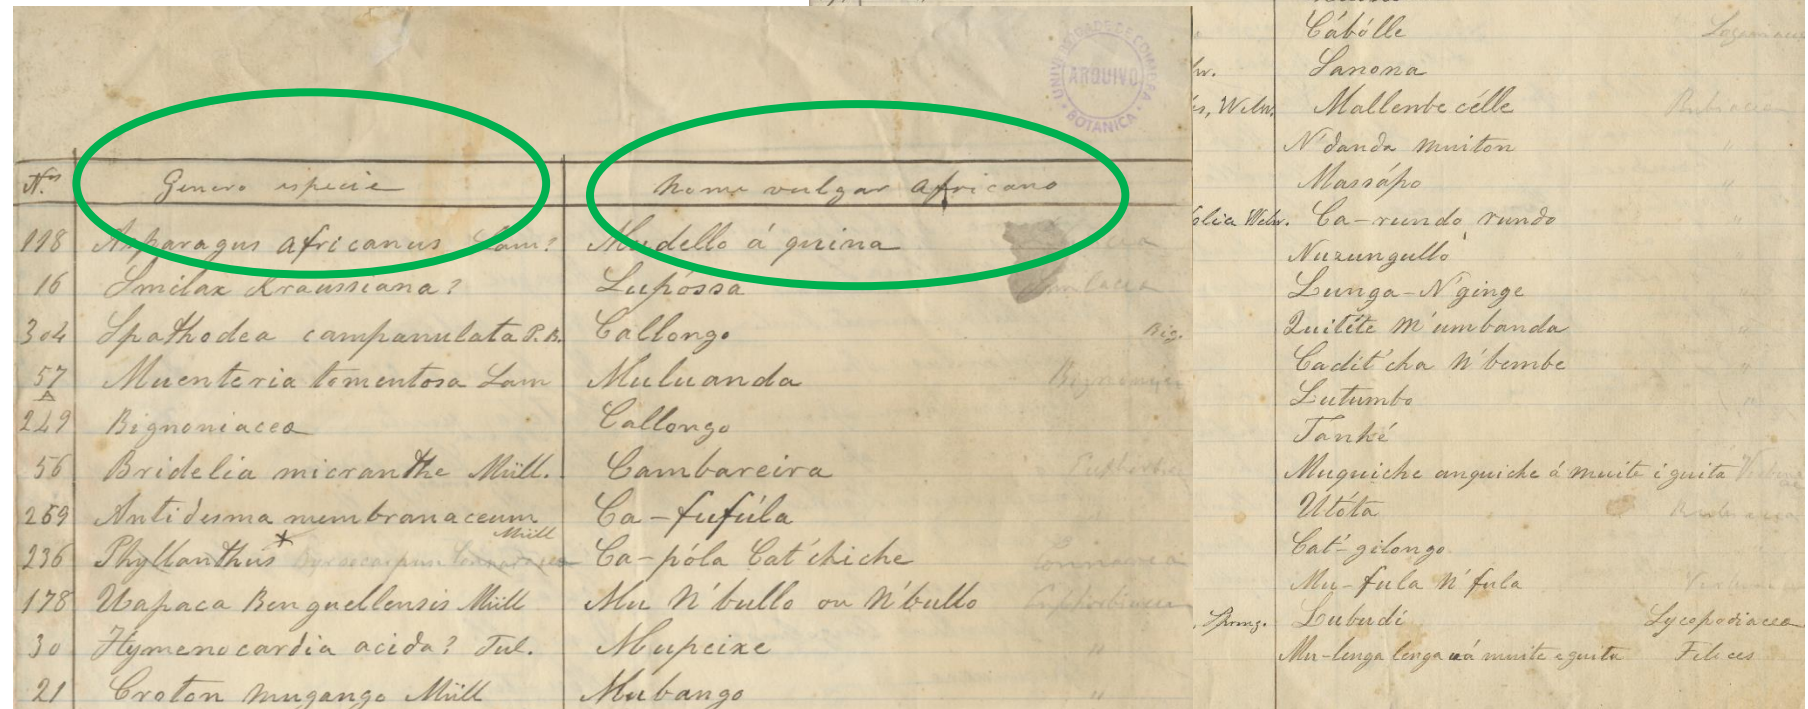 UNIVERSIDADE DE COIMBRA
ARQUIVO
BOTANICA
N.os Genero especie Nome vulgar Africano
118 Asparagus africanus Lam? Mudello á quina
16 Smilax Kraussiana? Lupóssa
304 Spathodea campanulata P.B. Callongo Big.
57 A Muenteria tomentosa Lam Muluanda Bignoniacea
249 Bignoniacea Callongo
56 Bridelia micranthe Müll. Cambareira
259 Antidesma membranaceum Müll Ca-fufúla
236 Phyllanthus * Byrsocarpus Connaracea Ca-póla Cat'chiche
178 Uapaca Benguellensis Müll Mu N'bullo ou N'bullo
30 Hymenocardia acida? Tul. Mupeixe "
21 Croton mugango Müll Mubango "
Cábólle
Sanona
Welw. Mallenbe célle Rubiacea
N'danda muiton "
Massápo "
Welw. Ca-rundo rundo "
Nuzungulló
Lunga-N'ginge "
Quitéte M'umbanda "
Cadít'cha N'bembe "
Lutumbo "
Tanké
Muquiche anguiche á muite iguita
Utóta Rubiacea
Cat'-gilongo
Mu-fula N'fula
Spring. Lubudí Lycopodiacea
Mu-lenga lenga uá muite eguita Filices